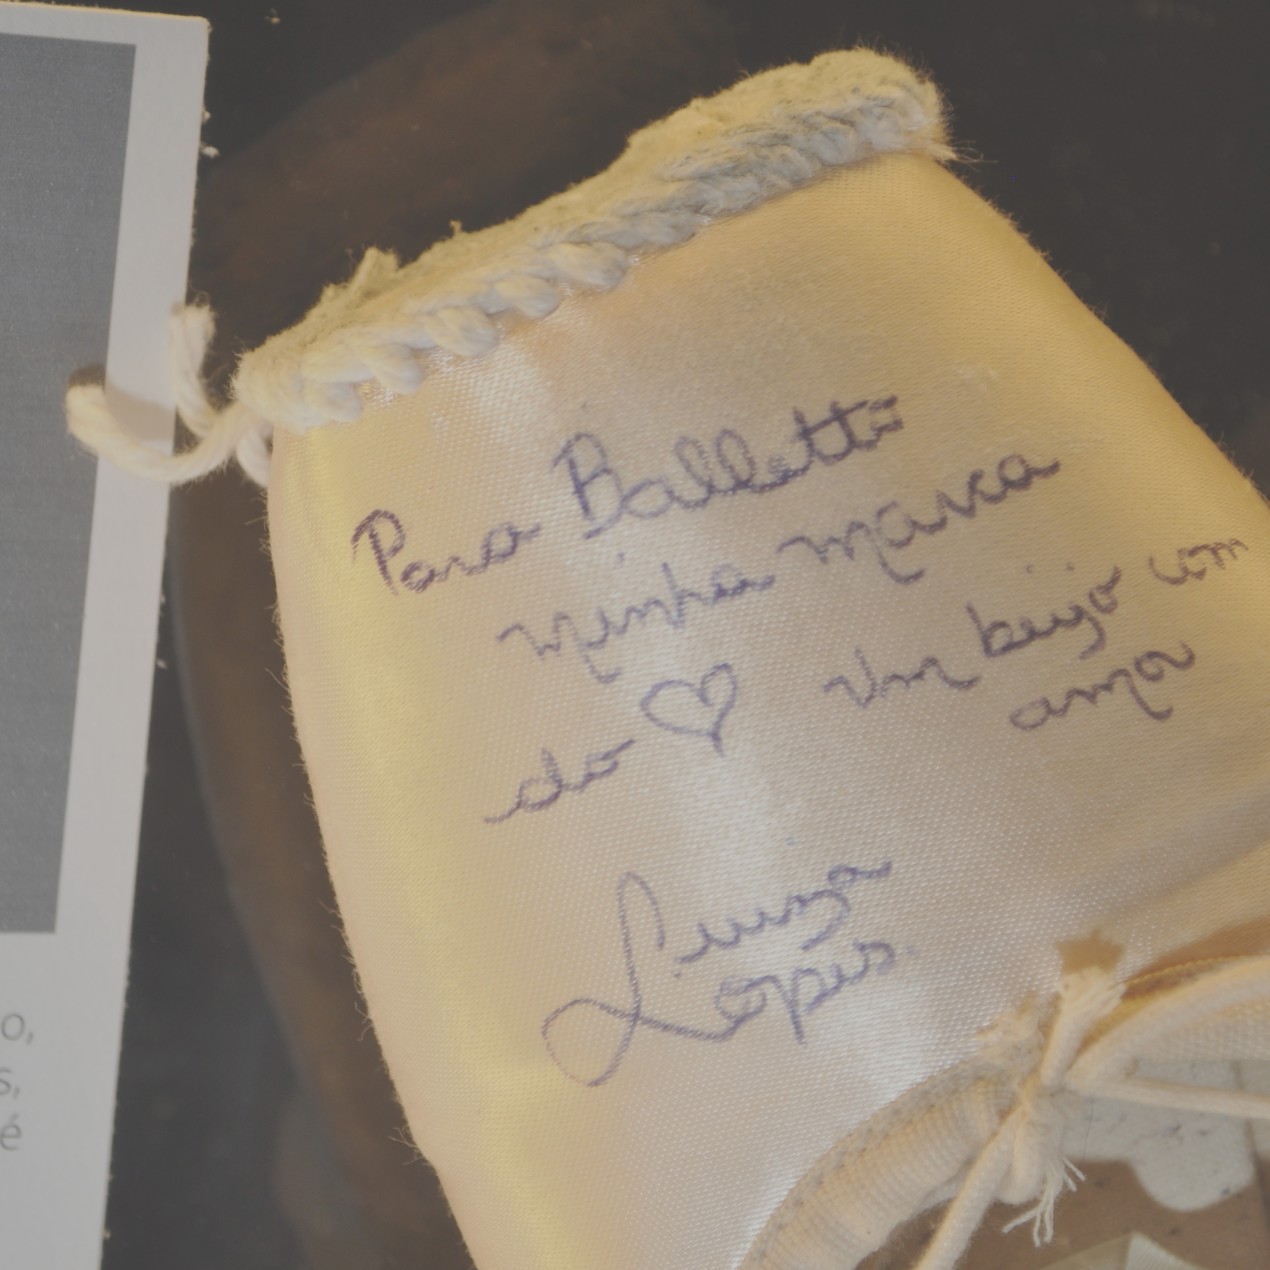 Para Balletto
minha marca
do ♡ Um beijo com
amor
Luiza
Lopes.
o,
s,
é